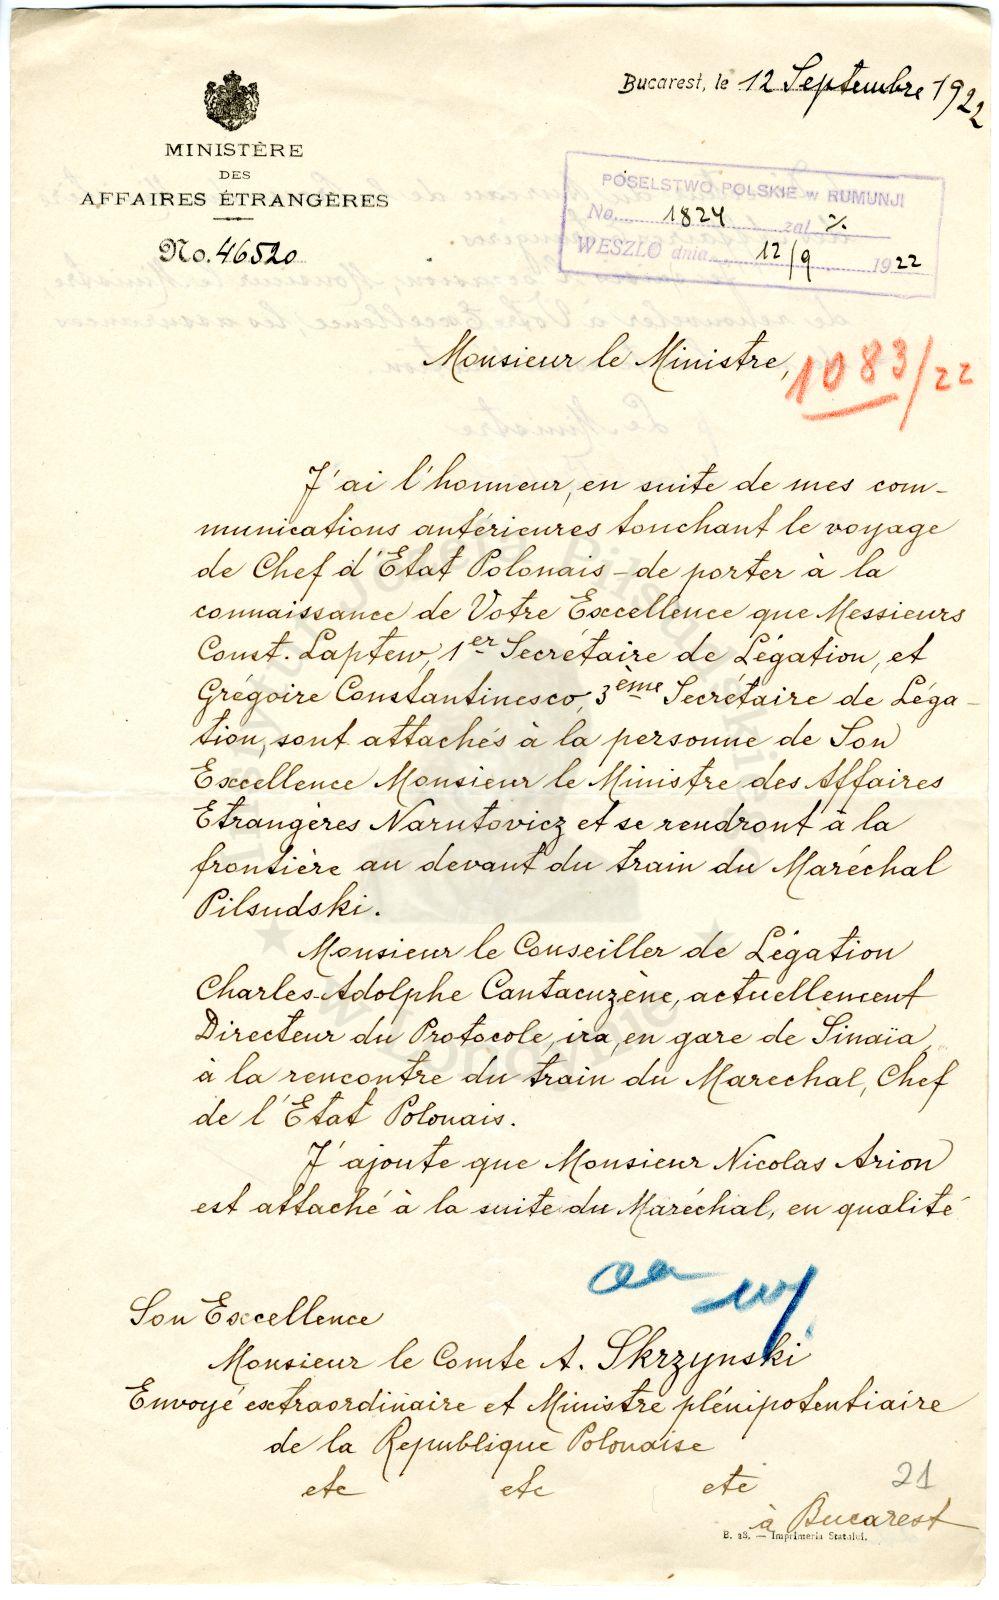 Bucarest, le 12 Septembre 1922
MINISTÈRE
DES
AFFAIRES ÉTRANGÈRES
No. 46520
POSELSTWO POLSKIE w RUMUNJI
No. 1824 zał %.
WESZŁO dnia 12/9 1922
Monsieur le Ministre,
1083/22
J'ai l'honneur, en suite de mes com-
munications antérieures touchant le voyage
de Chef d'Etat Polonais - de porter à la
connaissance de Votre Excellence que Messieurs
Const. Laptew, 1er Secrétaire de Légation, et
Grégoire Constantinesco, 3ème Secrétaire de Léga-
tion, sont attachés à la personne de Son
Excellence Monsieur le Ministre des Affaires
Etrangères Narutovicz et se rendront à la
frontière au devant du train du Maréchal
Pilsudski.
Monsieur le Conseiller de Légation
Charles-Adolphe Cantacuzène, actuellement
Directeur du Protocole, ira, en gare de Sinaïa,
à la rencontre du train du Marechal, Chef
de l'Etat Polonais.
J'ajoute que Monsieur Nicolas Arion
est attaché à la suite du Maréchal, en qualité
Son Excellence
Monsieur le Comte A. Skrzynski
Envoyé extraordinaire et Ministre plénipotentiaire
de la Republique Polonaise
etc etc etc
21
à Bucarest
B. 28. — Imprimeria Statului.